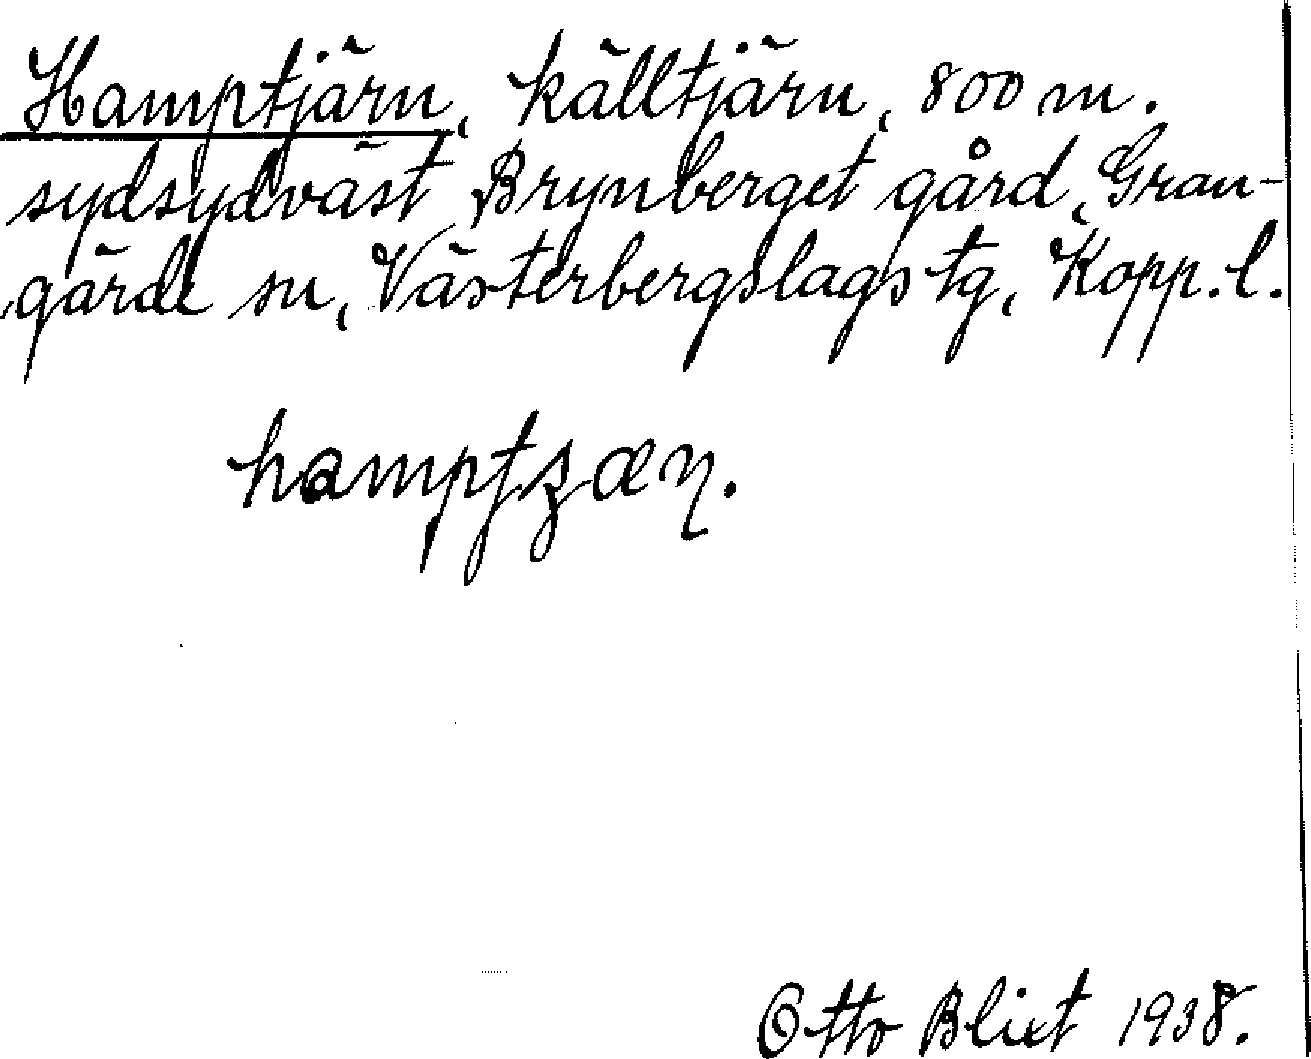 Hamptjärn, källtjärn, 800 m.
sydsydväst Brynberget gård, Gran-
gärde sn, Västerbergslags tg, Kopp. l.
Otto Blixt 1938.